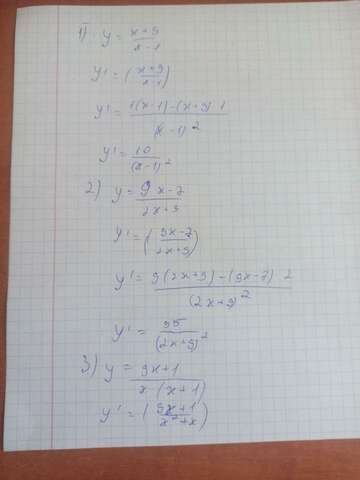 1) y = x+9 / x-1
y' = (x+9 / x-1)
y' = 1(x-1)-(x+9)·1 / (x-1)²
y' = 10 / (x-1)²
2) y = 9x-7 / 2x+9
y' = (9x-7 / 2x+9)
y' = 9(2x+9)-(9x-7)·2 / (2x+9)²
y' = 95 / (2x+9)²
3) y = 9x+1 / x·(x+1)
y' = (9x+1 / x²+x)